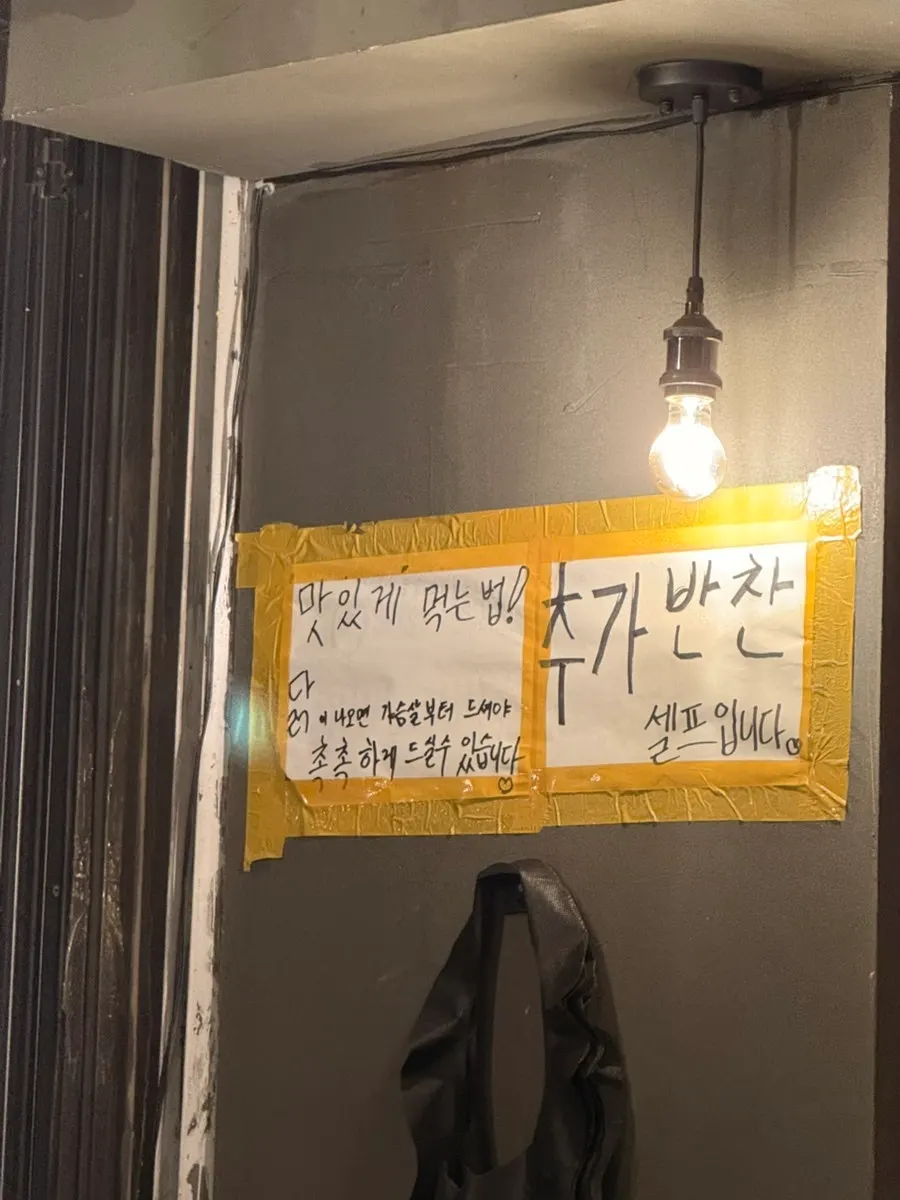 맛있게 먹는법!
닭
이 나오면 가슴살부터 드셔야
촉촉하게 드실수 있습니다
추가반찬
셀프입니다